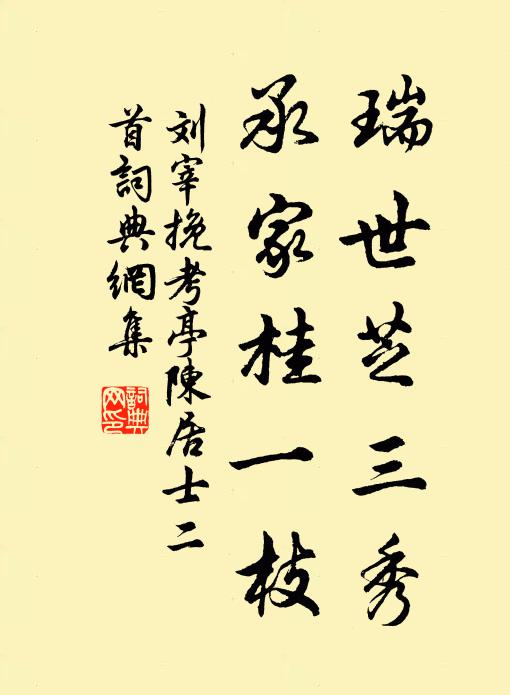 瑞世芝三秀
承家桂一枝
刘宰挽考亭陳居士二
首詞典網集
詞典網印